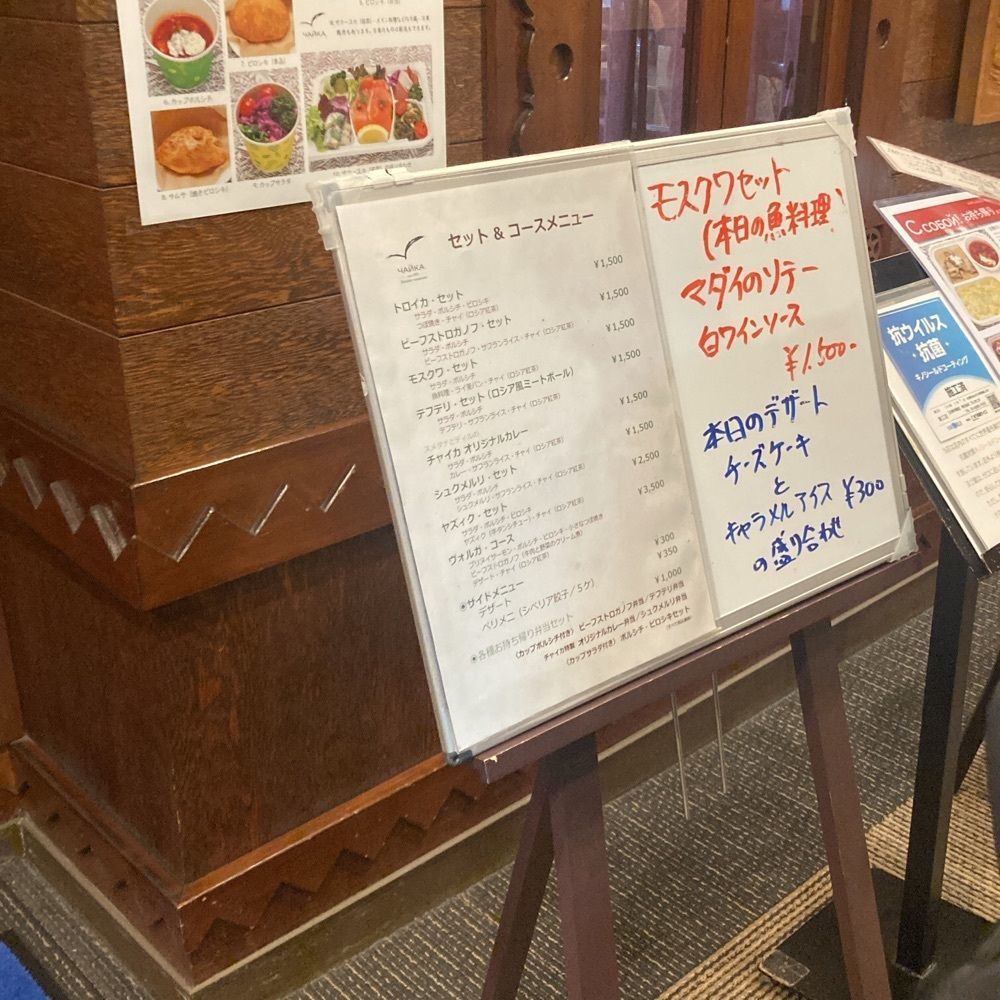 6. カップボルシチ
7. ピロシキ(単品)
8. サムサ(焼きピロシキ)
9. カップサラダ
ЧАЙКА
セット & コースメニュー
トロイカ・セット ¥1,500
サラダ・ボルシチ・ピロシキ
つぼ焼き・チャイ(ロシア紅茶)
ビーフストロガノフ・セット ¥1,500
サラダ・ボルシチ
ビーフストロガノフ・サフランライス・チャイ(ロシア紅茶)
モスクワ・セット ¥1,500
サラダ・ボルシチ
魚料理・ライ麦パン・チャイ(ロシア紅茶)
テフテリ・セット(ロシア風ミートボール) ¥1,500
サラダ・ボルシチ
テフテリ・サフランライス・チャイ(ロシア紅茶)
チャイカ オリジナルカレー ¥1,500
サラダ・ボルシチ
カレー・サフランライス・チャイ(ロシア紅茶)
シュクメルリ・セット ¥1,500
サラダ・ボルシチ
シュクメルリ・サフランライス・チャイ(ロシア紅茶)
ヤズィク・セット ¥2,500
サラダ・ボルシチ・ピロシキ
ヤズィク(牛タンシチュー)・チャイ(ロシア紅茶)
ヴォルガ・コース ¥3,500
ブリヌイサーモン・ボルシチ・ピロシキ・小さなつぼ焼き
ビーフストロガノフ(牛肉と野菜のクリーム煮)
デザート・チャイ(ロシア紅茶)
●サイドメニュー
デザート ¥300
ペリメニ(シベリア餃子/5ケ) ¥350
●各種お持ち帰り弁当セット ¥1,000
(カップボルシチ付き) ビーフストロガノフ弁当/テフテリ弁当
チャイカ特製 オリジナルカレー弁当/シュクメルリ弁当
(カップサラダ付き) ボルシチ・ピロシキセット
モスクワセット
(本日の魚料理)
マダイのソテー
白ワインソース
¥1.500-
本日のデザート
チーズケーキ
と
キャラメルアイス ¥300
の盛り合わせ
С СОБОЙ!
抗ウイルス
・抗菌・
キノシールドコーティング
施工済